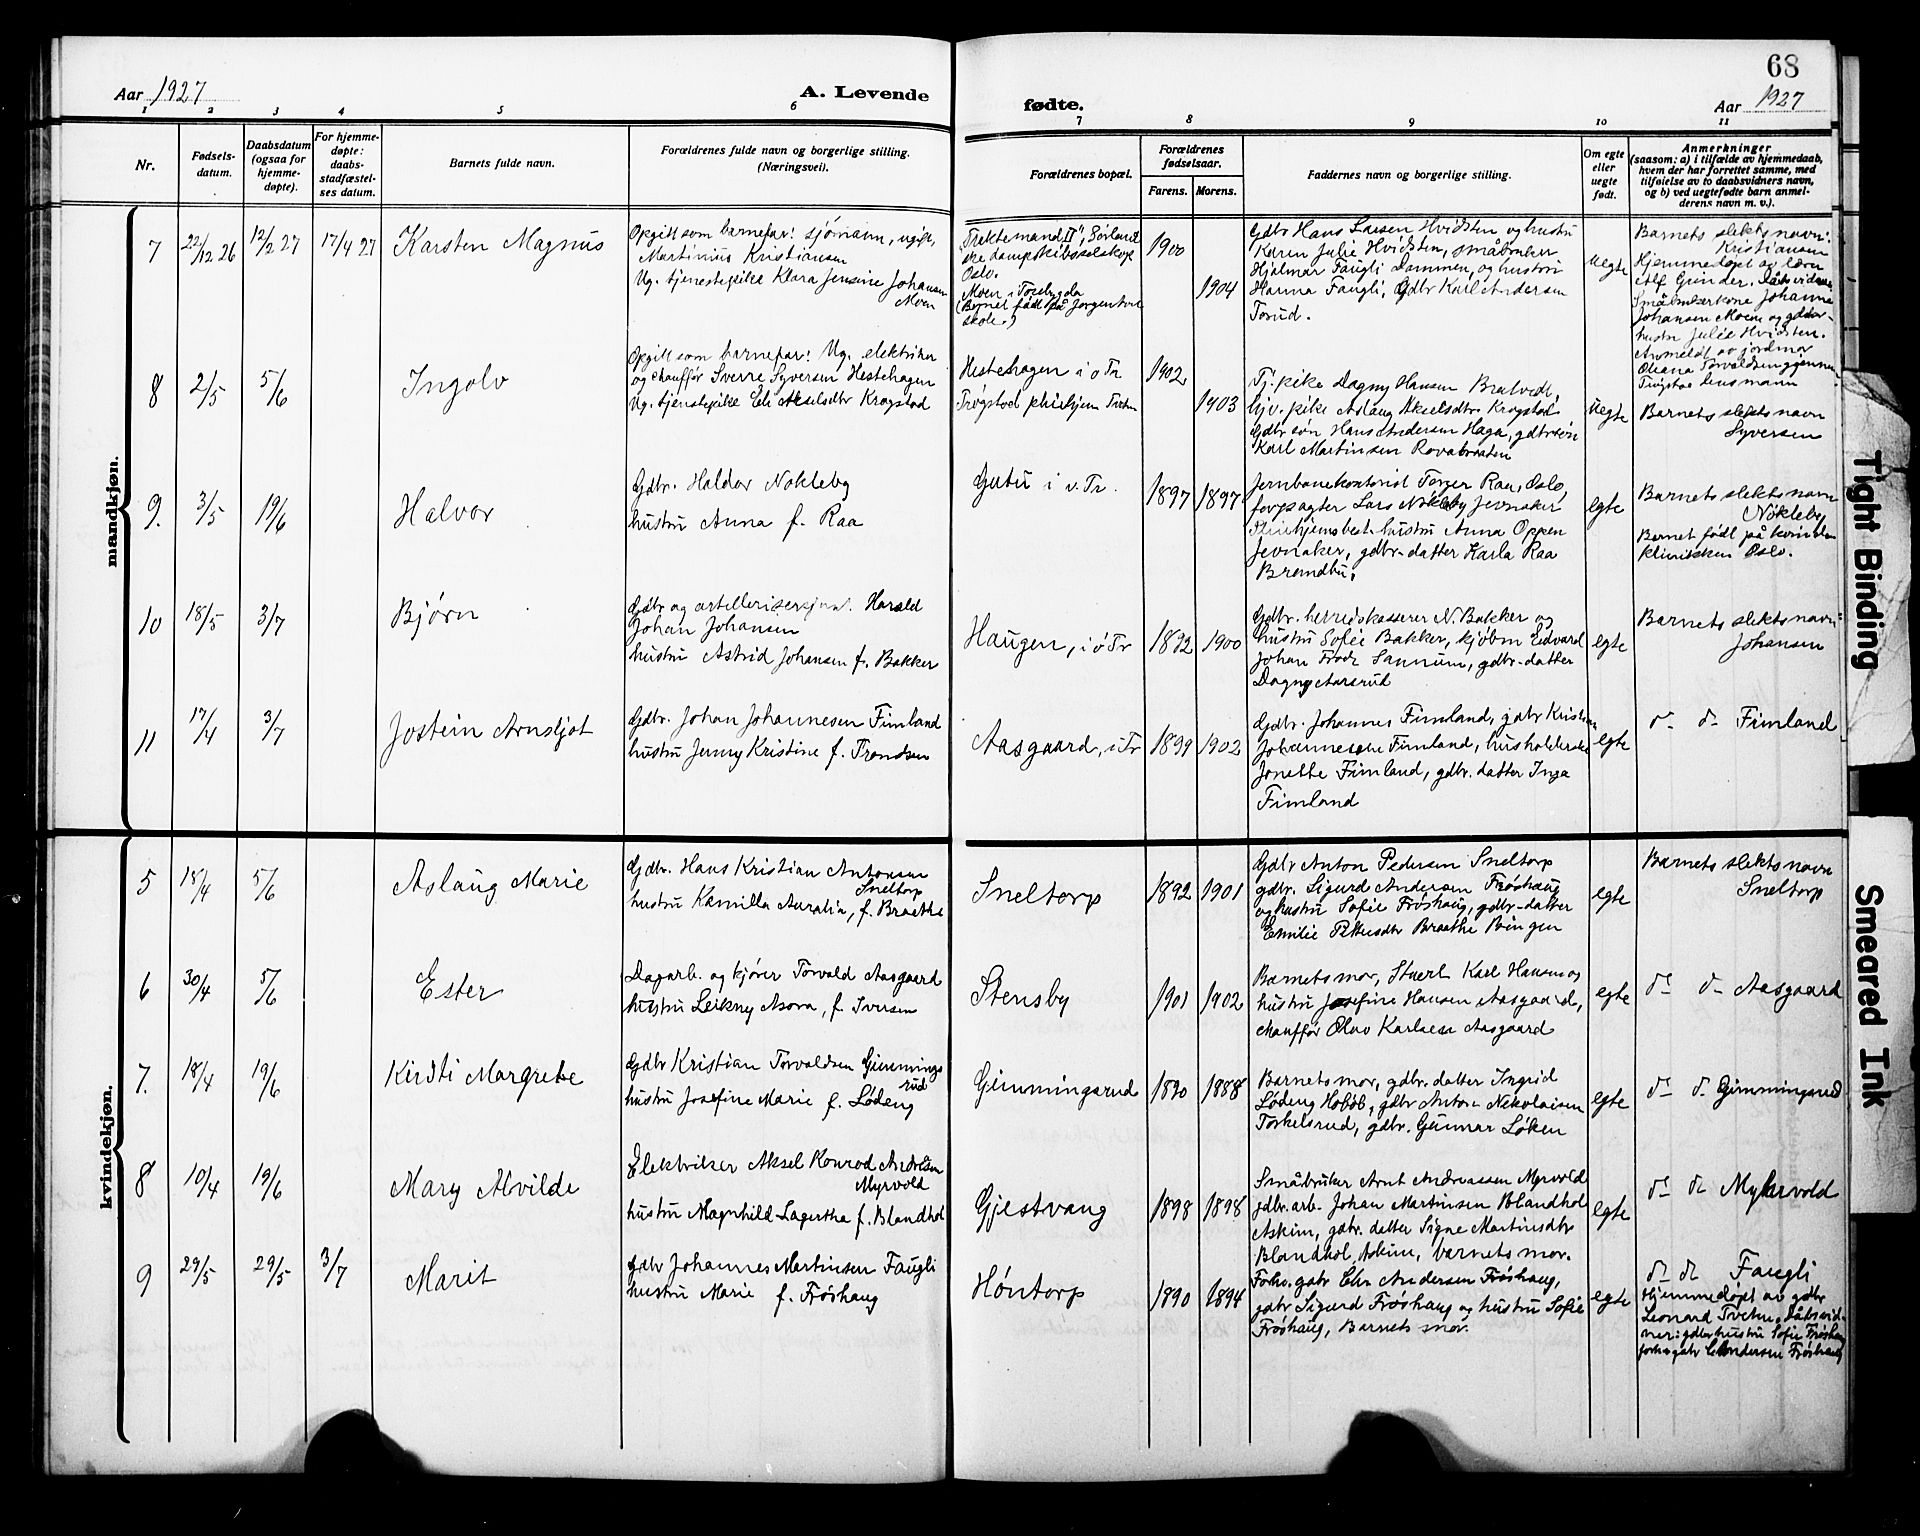 68
Aar 1927
A. Levende
fødte.
Aar 1927
1 2 3 4 5 6 7 8 9 10 11
Nr.
Fødsels-
datum.
Daabsdatum
(ogsaa for
hjemme-
døpte).
For hjemme-
døpte:
daabs-
stadfæstel-
ses datum.
Barnets fulde navn.
Forældrenes fulde navn og borgerlige stilling.
(Næringsvei).
Forældrenes bopæl.
Forældrenes
fødselsaar.
Farens. Morens.
Faddernes navn og borgerlige stilling.
Om egte
eller
uegte
født.
Anmerkninger
(saasom: a) i tilfælde av hjemmedaab,
hvem der har forrettet samme, med
tilføielse av to daabsvidners navn,
og b) ved uegtefødte barn anmel-
derens navn m. v.).
mandkjøn.
7 22/12 26 12/2 27 17/4 27 Karsten Magnus
Opgitt som barnefar: sjømann, ugift,
Martinius Kristiansen
Ug. tjenestepike Klara Jensine Johansen
Moen
Oslo.
Moen i Torebygda
skole.)
1900
1904
Gdbr Hans Larsen Hvidsten og hustru
Karen Julie Hvidsten, småbruker
Hjalmar Faugli Dammen, og hustru
Hanna Faugli, Gdbr Karl Andersen
Torud.
uegte
Barnets slektsnavn:
Kristiansen
Hjemmedøpt av lærer
Johansen Moen og gdbr-
hustru Julie Hvidsten.
Anmeldt av jordmor
8 2/5 5/6 Ingolv
Opgitt som barnefar: Ug. elektriker
og chauffør Sverre Syversen Hestehagen
Ug. tjenestepike Eli Akselsdtr Krogstad
Hestehagen i ø Tr
Trøgstad pleiehjem Tveten
1902
1903
Tj. pike Dagny Hansen Bratvedt,
tjv. pike Aslaug Akselsdtr. Krogstad
Gdbr søn Hans Andersen Haga, gdbrsøn
Karl Martinsen
uegte
Barnets slektsnavn
Syversen
9. 3/5 19/6 Halvor
Gdbr. Haldor Nøkleby
hustru Anna f. Raa
Gutu i v. Tr.
1897 1897
Jernbanekontorist Torger Raa, Oslo,
forpagter Lars Nøkleby Jevnaker
hustru Anna Oppen
Jevnaker, gdbr-datter Karla Raa
Brandbu.
egte
Barnets slektsnavn
Nøkleby
Barnet født på kvinde
klinikken Oslo.
10 18/5 3/7 Bjørn
Gdbr og artillerisersjant. Harald
Johan Johansen
hustru Astrid Johansen f. Bakker
Haugen, i ø Tr
1892 1900
Gdbr. herredskasserer N. Bakker og
hustru Sofie Bakker, kjøbm Edvard
Johan Frode Sannum, gdbr-datter
Dagny Aarsrud
egte
Barnets slektsnavn:
Johansen
11 17/4 3/7 Jostein Arnsljot
Gdbr. Johan Johannesen Fimland
hustru Jenny Kristine f. Trondsen
Aasgaard, i Tr
1899 1902
Gdbr. Johannes Fimland, gdbr Kristian
Johannesen Fimland, husholderske
Jonette Fimland, gdbr. datter Inga
Fimland
egte
do do Fimland
kvindekjøn.
5 18/4 5/6 Aslaug Marie
Gdbr. Hans Kristian Antonsen
Sneltorp
hustru Kamilla Auralia, f. Braathe
Sneltorp
1892 1901
Gdbr Anton Pedersen Sneltorp
gdbr. Sigurd Andersen Frøshaug
og hustru Sofie Frøshaug, gdbr-datter
Emilie Pettersdtr Braathe Bingen
egte
Barnets slektsnavn
Sneltorp
6 30/4 5/6 Ester
Dagarb. og kjører Torvald Aasgaard
hustru Leikny Asora, f. Iversen
Stensby
1901 1902
Barnets mor, Karl Hansen og
hustru Josefine Hansen Aasgaard,
chauffør Olav Karlsen Aasgaard
egte
do do Aasgaard
7. 18/4 19/6 Kirsti Margrete
Gdbr Kristian Torvaldsen Gimmings
rud
hustru Josefine Marie f. Løding
Gimmingsrud
1890 1888
Barnets mor, gdbr. datter Ingrid
Løding Hobøl, gdbr Anton Nikolaisen
Torkelsrud, gdbr. Gunnar Løken
egte
do do Gimmingsrud
8 10/4 19/6 Mary Alvilde
Elektriker Aksel Konrad Andresen
Myrvold
hustru Magnhild Lagertha f. Blandhol
Gjestvang
1898 1898
Småbruker Arnt Andreassen Myrvold
gdbr. arb. Johan Martinsen Blandhol
Askim, gdbr. datter Signe Martinsdtr
Blandhol, Askim, barnets mor.
egte
do do Myhrvold
9 29/5 29/5 3/7 Marit
gdbr Johannes Martinsen Faugli
hustru Marie f. Frøshaug
Høntorp
1890 1894
Forhv. gdbr Chr Andersen Frøshaug,
gdbr Sigurd Frøshaug og hustru Sofie
Frøshaug, Barnets mor.
egte
do do Faugli
Hjemmedøpt av gdbr
Leonard Tveten. Dåbsvid-
ner: gdbrhustru Sofie Frøshaug
forhv gdbr C. Andersen Frøshaug
Tight Binding
Smeared Ink